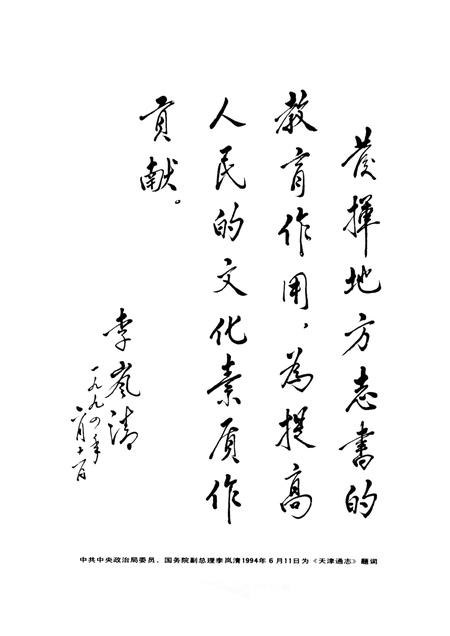 发揮地方志書的
教育作用，为提高
人民的文化素质作
贡献。
李岚清
一九九四年
六月十一日
中共中央政治局委员、国务院副总理李岚清1994年6月11日为《天津通志》题词